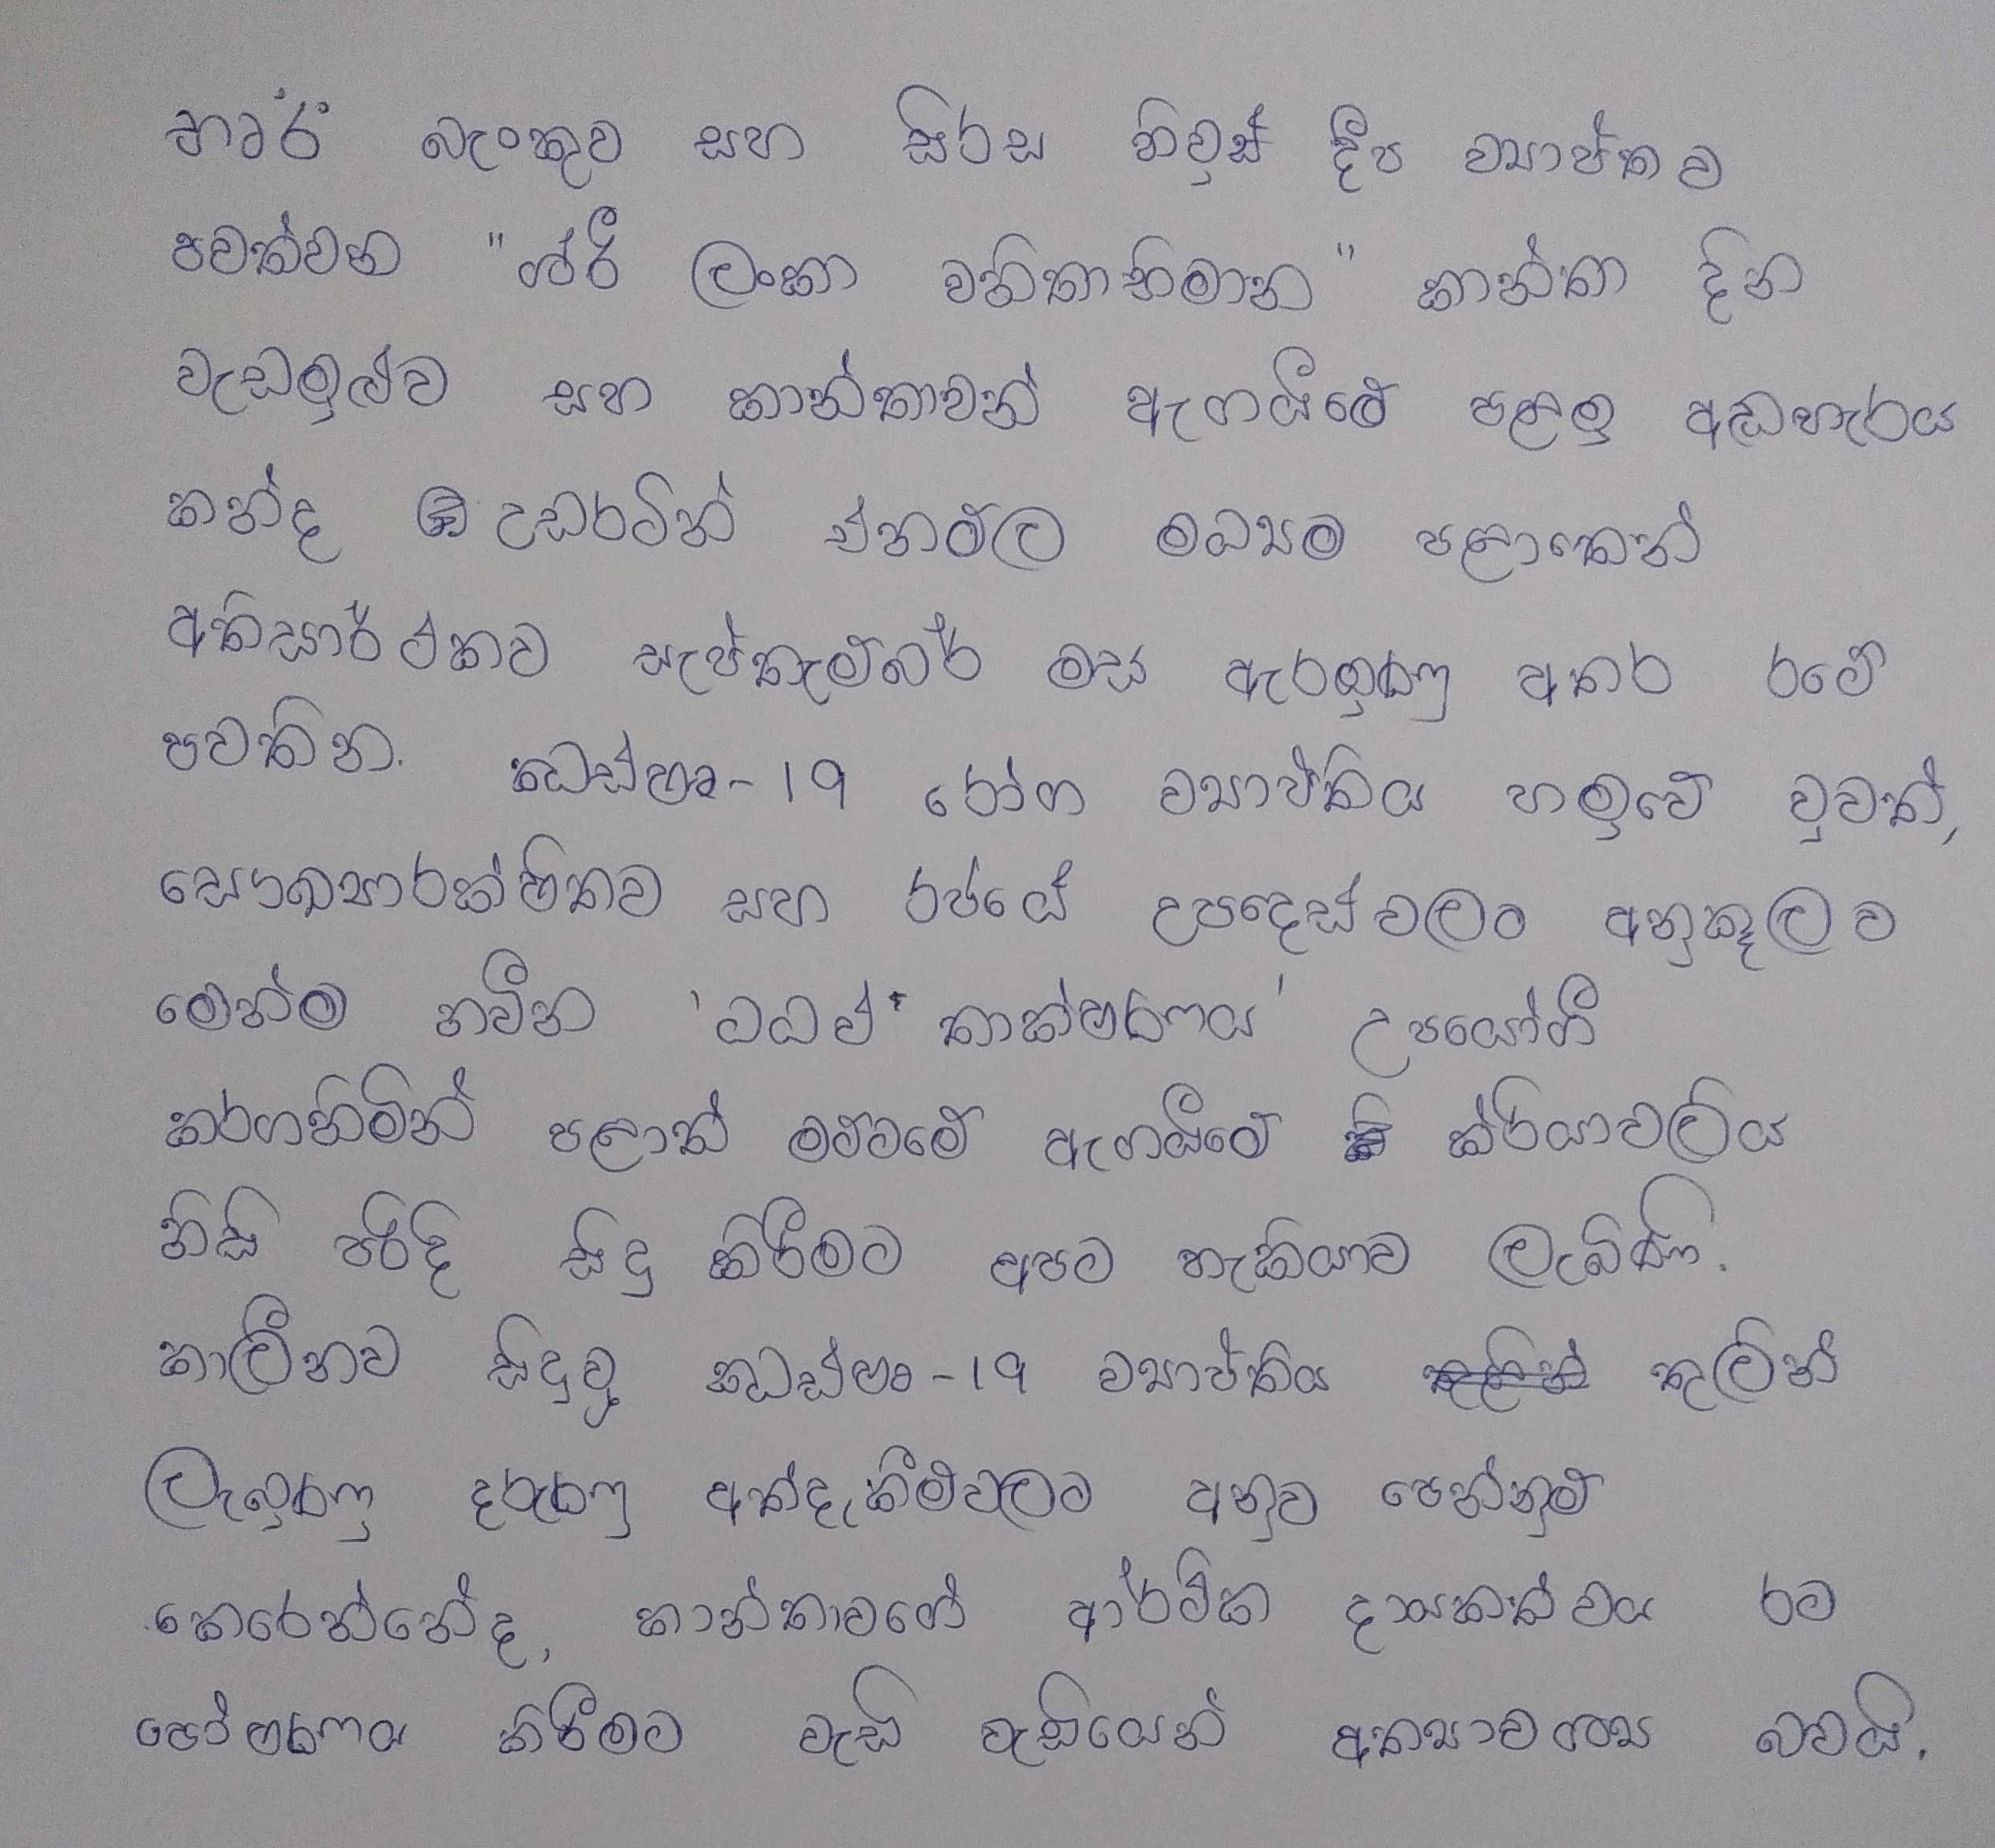 භාර් බැංකුව සහ සිරස නිවුස් දීප ව්‍යාප්තව
පවත්වන "ශ්රී ලංකා වනිතාභිමාන" කාන්තා දින
වැඩමුළුව සහ කාන්තාවන් ඇගයීමේ පළමු අඩහැරය
කන්ද උඩරටින් එනම්ල මධ්‍යම පළාතෙන්
අතිසාර්ථකව සැප්තැම්බර් මස ඇරඹුණු අතර රටේ
පවතින. -19 රෝග ව්‍යාප්තිය හමුවේ වුවත්,
සෞඛ්‍යාරක්ෂිතව සහ රජයේ උපදෙස්වලට අනුකූලව
මෙන්ම නවීන තාක්ෂණය' උපයෝගී
කරගනිමින් පළාත් මට්ටමේ ඇගයීමේ ක්රියාවලිය
නිසි පරිදි සිදු කිරීමට අපට හැකියාව ලැබිණි.
කාලීනව සිදුවූ -19 ව්‍යාප්තිය තුලින්
ලැබුණු දරුණු අත්දැකීම්වලට අනුව පෙන්නුම්
කෙරෙන්නේද, කාන්තාවගේ ආර්ථික දායකත්වය රට
පෝෂණය කිරීමට වැඩි වැඩියෙන් අත්‍යාවශ්‍ය බවයි.